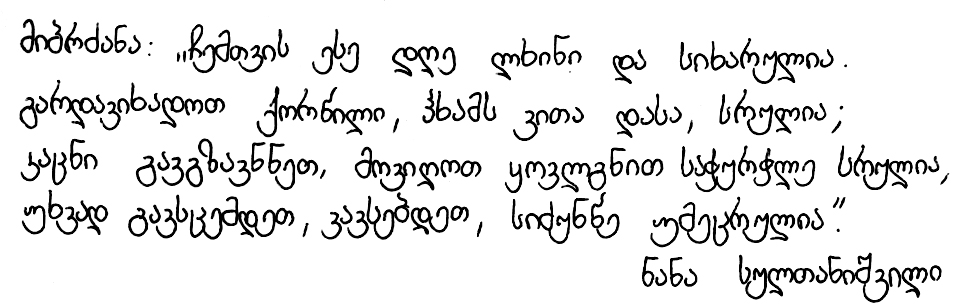 მიბრძანა: „ჩემთვის ესე დღე ლხინი და სიხარულია.
გარდავიხადოთ ქორწილი, ჰხამს ვითა დასა, სრულია;
კაცნი გავგზავნნეთ, მოვიღოთ ყოვლგნით საჭურჭლე სრულია,
უხვად გავსცემდეთ, ვავსებდეთ, სიძუნწე უმეცრულია.”
ნანა სულთანიშვილი